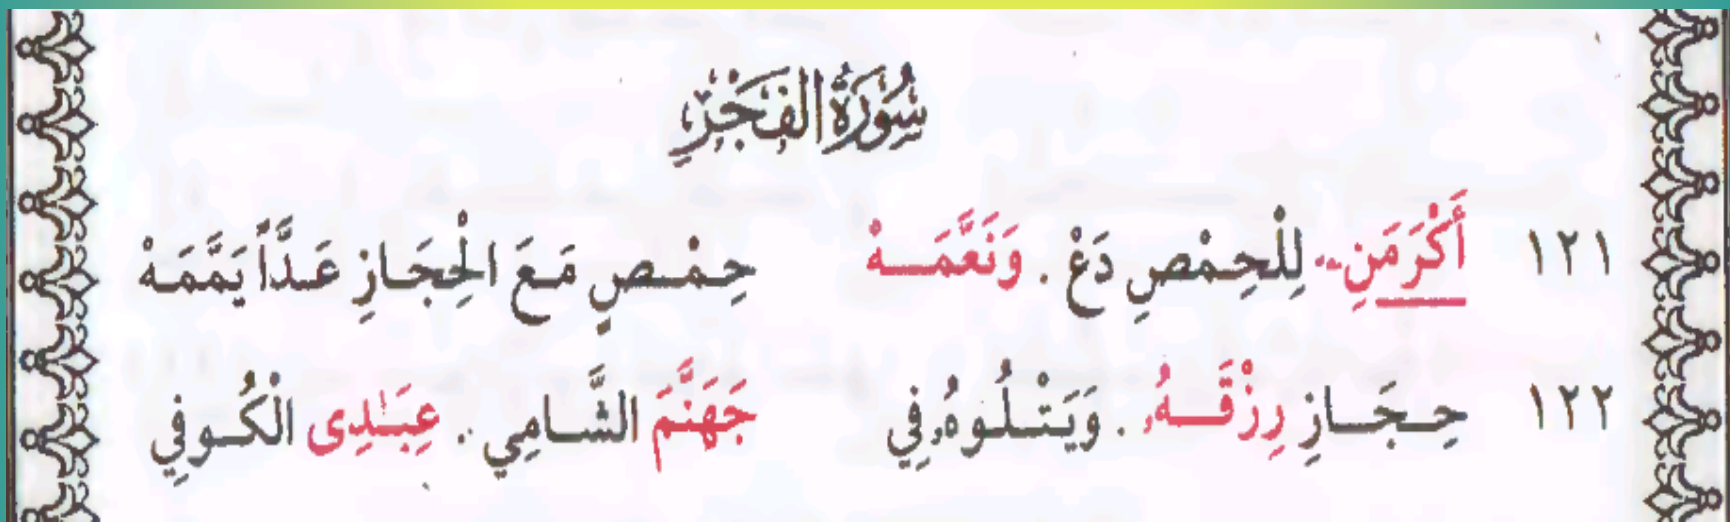 سُورَةُ الفَجْرِ
١٢١ أَكْرَمَنِۦ لِلْحِمْصِ دَعْ . وَنَعَّمَهْ حِمْصٍ مَعَ الْحِجَازِ عَدًّا يَمَّمَهْ
١٢٢ حِجَازِ رِزْقَهُۥ . وَيَتْلُوهُۥ فِي جَهَنَّمَ الشَّامِي . عِبَٰدِى الْكُوفِي